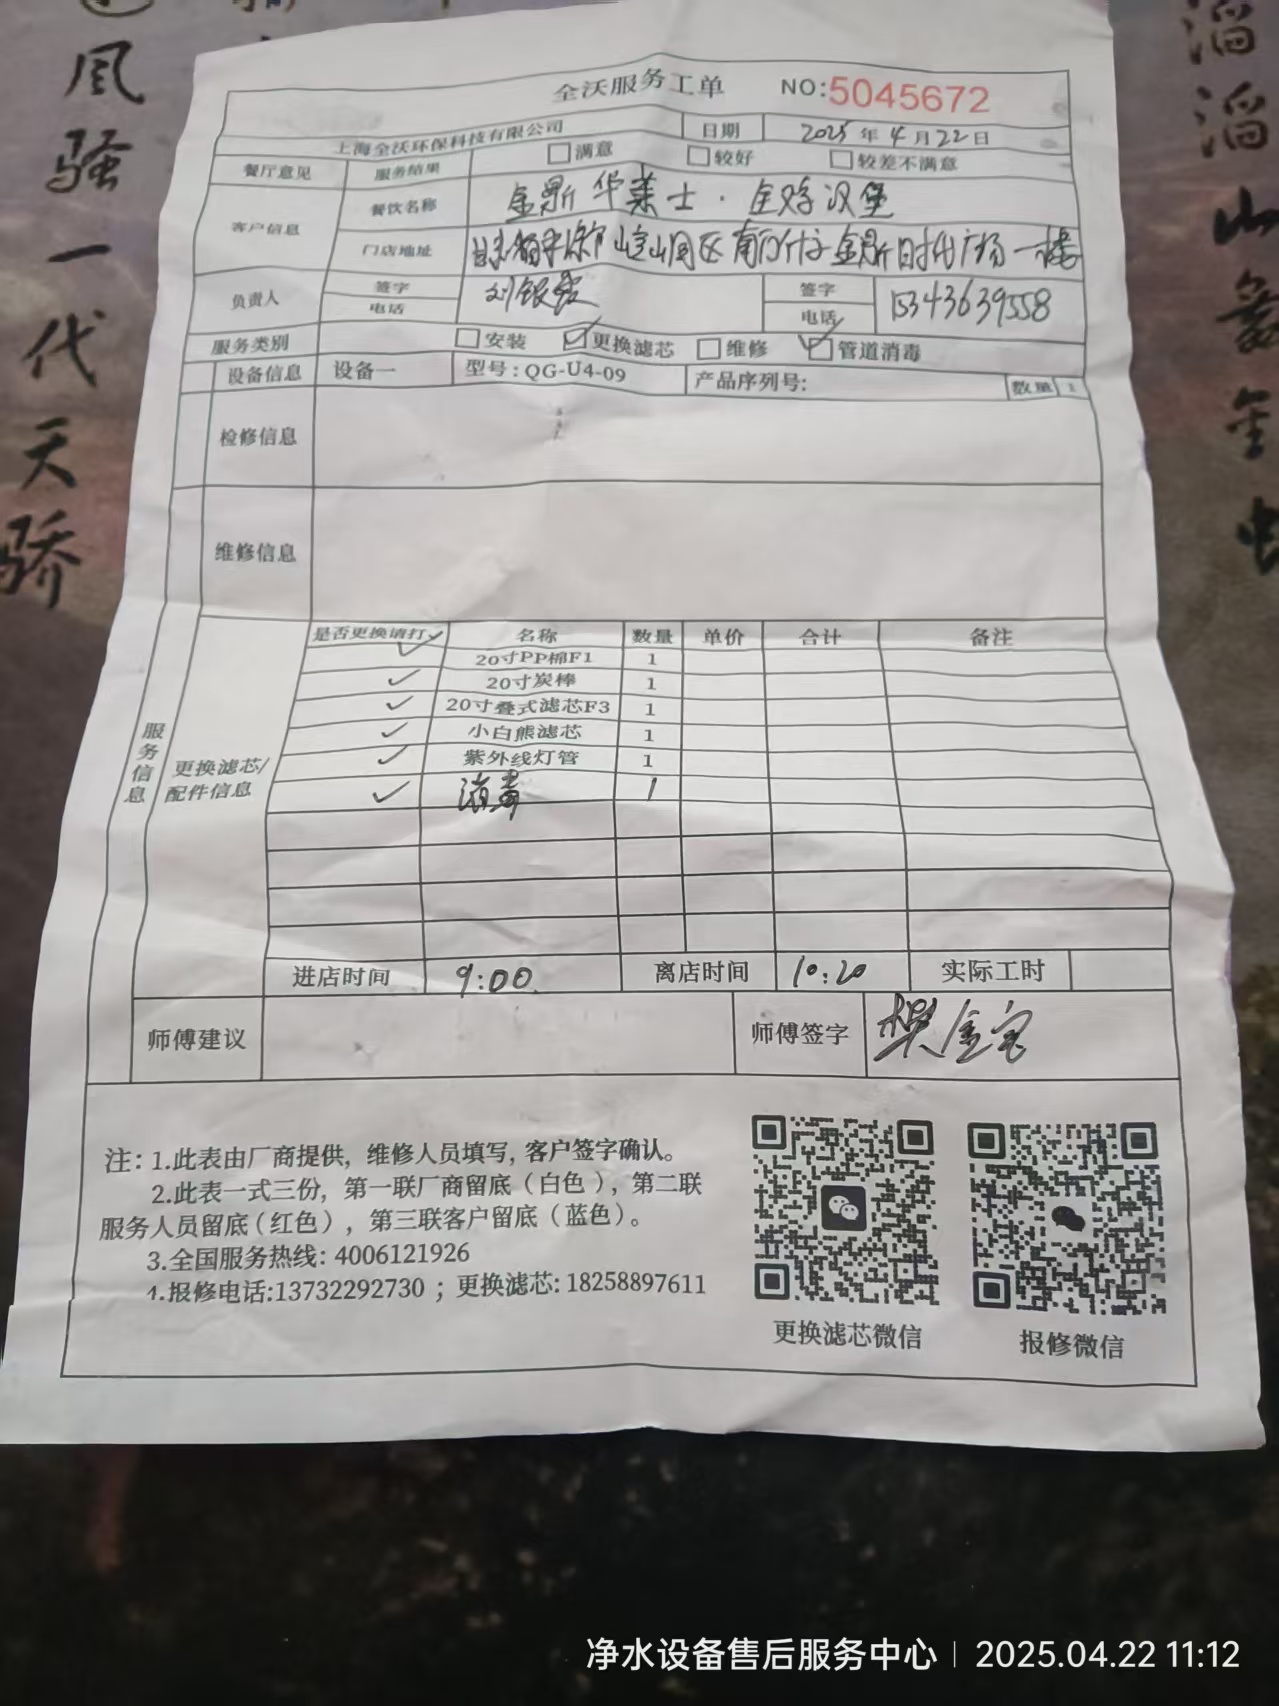 风骚一代天骄
滔滔
山
全沃服务工单 NO:5045672
上海全沃环保科技有限公司 日期 2025年4月22日
餐厅意见 服务结果 满意 较好 较差不满意
客户信息 餐饮名称 金鼎华莱士·全鸡汉堡
门店地址 南门什字金鼎时代广场一楼
负责人 签字 刘银 签字
电话 电话 15343639558
服务类别 安装 ✓更换滤芯 维修 ✓管道消毒
设备信息 设备一 型号:QG-U4-09 产品序列号: 数量 1
检修信息
维修信息
服务信息
更换滤芯/配件信息
是否更换请打✓ 名称 数量 单价 合计 备注
✓ 20寸PP棉F1 1
✓ 20寸炭棒 1
✓ 20寸叠式滤芯F3 1
✓ 小白熊滤芯 1
✓ 紫外线灯管 1
✓ 消毒 1
进店时间 9:00 离店时间 10:20 实际工时
师傅建议 师傅签字 樊金宝
注:1.此表由厂商提供, 维修人员填写, 客户签字确认。
2.此表一式三份, 第一联厂商留底(白色), 第二联
服务人员留底(红色), 第三联客户留底(蓝色)。
3.全国服务热线: 4006121926
4.报修电话:13732292730 ; 更换滤芯: 18258897611
更换滤芯微信 报修微信
净水设备售后服务中心 | 2025.04.22 11:12